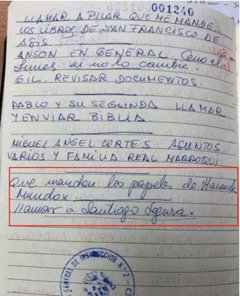 001246
LLAMAR A PILAR QUE ME MANDE
LOS LIBROS DE SAN FRANCISCO DE
ASIS
ANSON EN GENERAL. Cena el
lunes si no lo cambie
GIL. REVISAR DOCUMENTOS
PABLO Y SU SEGUNDA LLAMAR
Y ENVIAR BIBLIA
MIGUEL ANGEL CORTES ASUNTOS
VARIOS Y FAMILIA REAL MARROQUI
Que manden los papeles de
Mundox.
llamar a Santiago Segura.
CENTRAL DE INSTRUCCION N.º 2